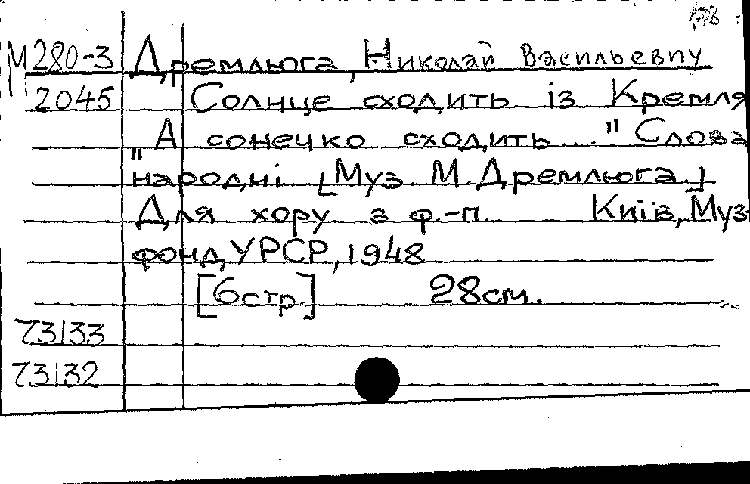 М280-3 Дремлюга, Николай Васильевич
2045 Солнце сходить із Кремля
"А сонечко сходить..." Слова
народні [Муз. М. Дремлюга.]
Для хору з ф.-п. Київ, Муз
фонд УРСР, 1948
[6 стр.] 28 см.
73133
73132